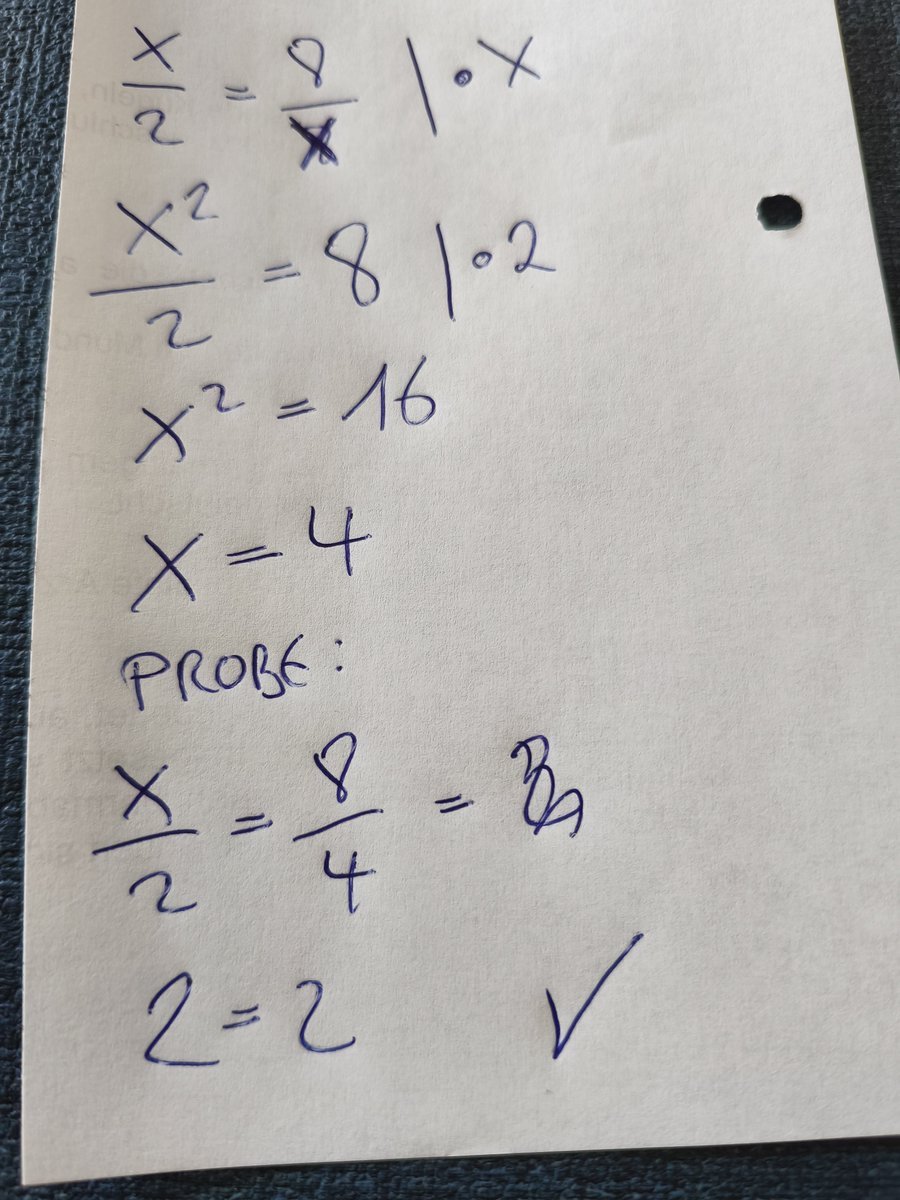 x/2 = 8/x | · x
x²/2 = 8 | · 2
x² = 16
x = 4
PROBE:
x/2 = 8/4 =
2 = 2 ✓